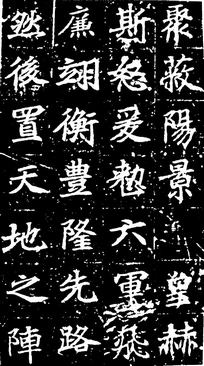 聚蔽陽景皇赫
斯怒爰勒六軍飛
廉翊衡豊隆先路
然後置天地之陣